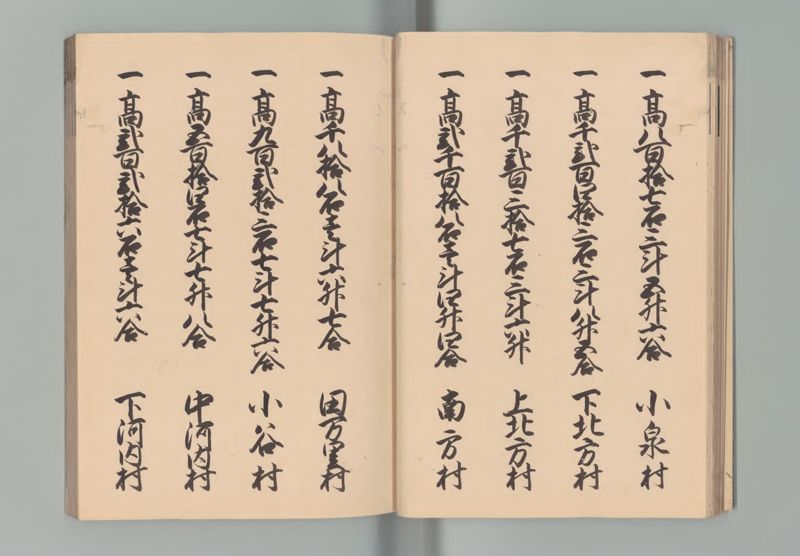 一高八百拾七石三斗五升六合 小泉村
一高千弐百四拾三石三斗八升五合 下北方村
一高千弐百三拾七石三斗六升 上北方村
一高弐千百拾八石壱斗四升四合 南方村
一高千八拾八石壱斗六升七合 田万里村
一高九百弐拾三石七斗七升六合 小谷村
一高五百拾四石七斗七升八合 中河内村
一高弐百弐拾六石壱斗六合 下河内村